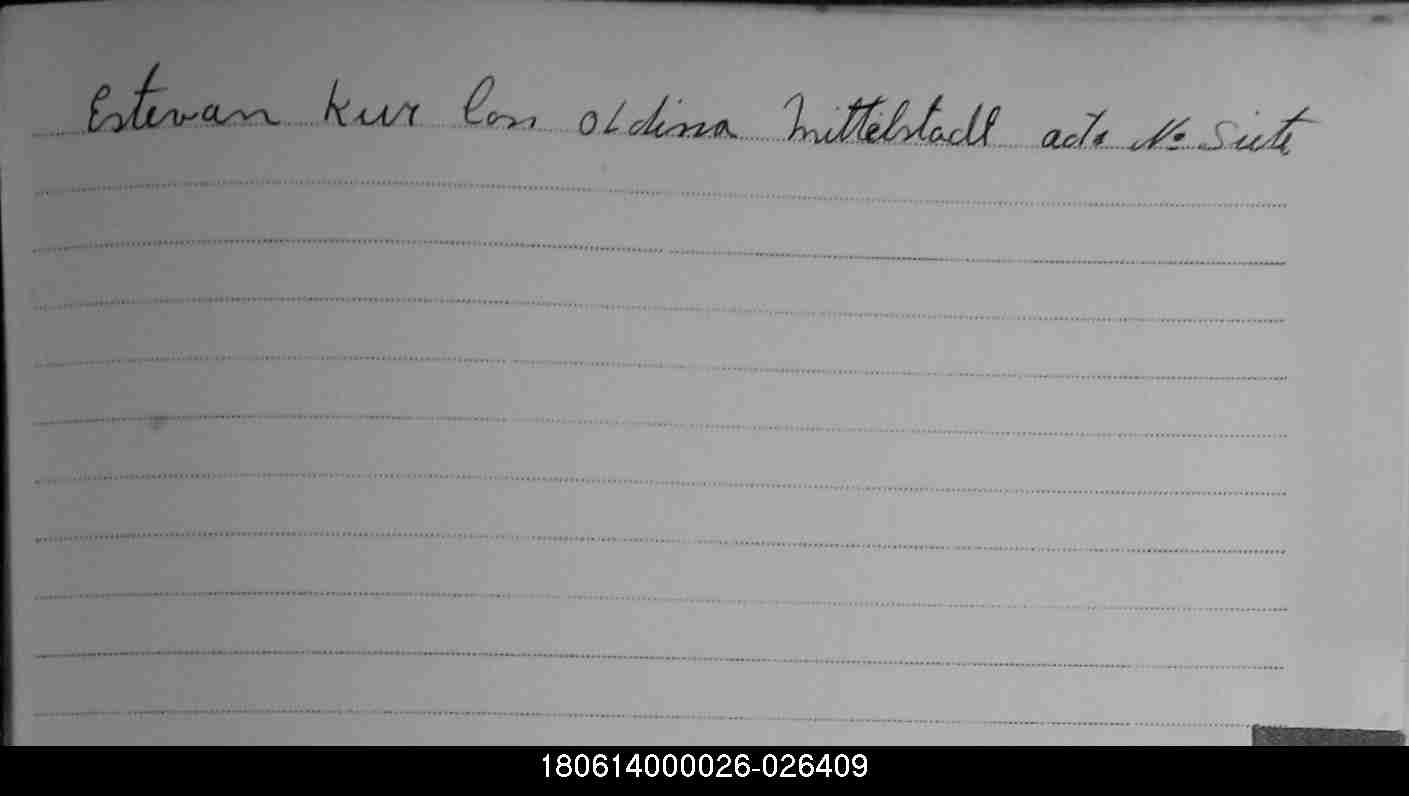 Estevan Kur con oldina Mittelstadl acta No Siete
180614000026-026409